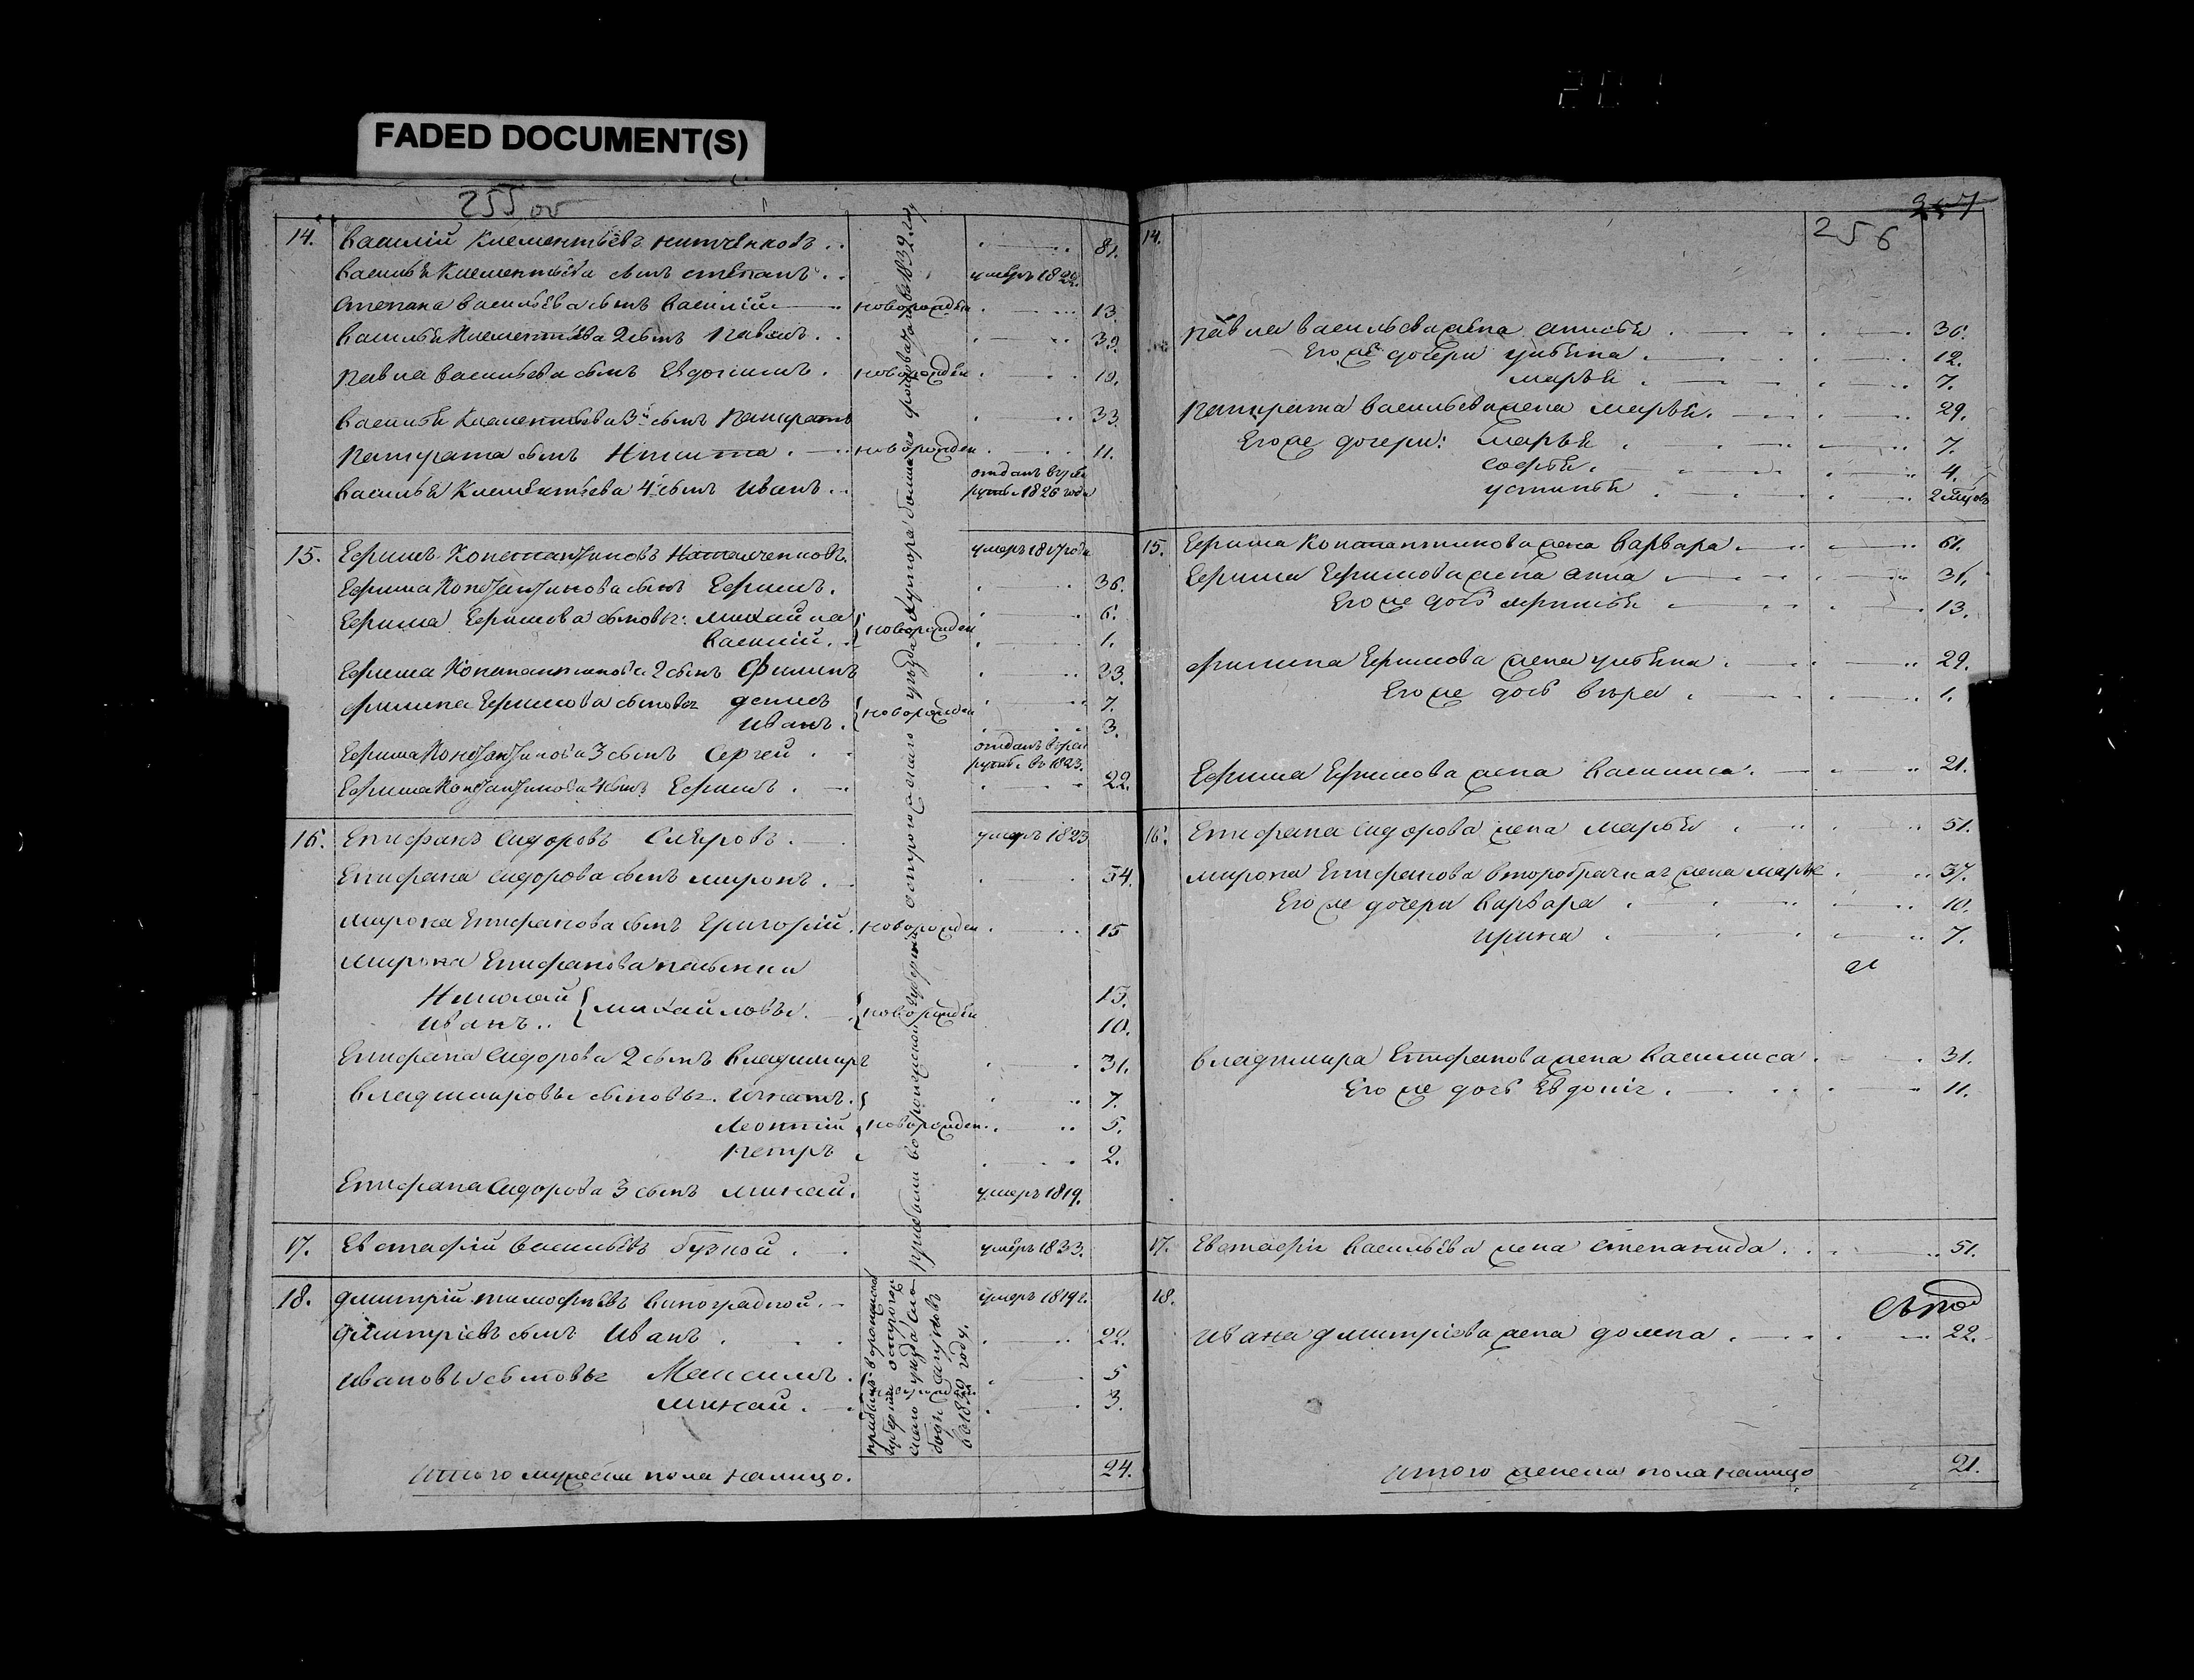 FADED DOCUMENT(S)
255 об
14. Василій Клементьевъ 81.
Василья Клементьева сынъ Степанъ умеръ 1822.
Степана Васильева сынъ Василій новорожден 13
Василья Клементьева 2 сынъ Павелъ 39.
Павла Васильева сынъ Евдокимъ новорожден
Василья Клементьева 3й сынъ Панкратъ 33.
Панкрата сынъ Никита новорожден 11.
Василья Клементьева 4й сынъ Иванъ отданъ в рек руты 1826 года
15. Ефимъ Константиновъ умеръ 1817 года
Ефима Константинова сынъ Ефимъ 36.
Ефима Ефимова сыновья: Михайла новорожден 6.
Василій 1.
Ефима Константинова 2 сынъ Филипъ 33.
Филипа Ефимова сыновья Денис новорожден 7.
Иванъ 3.
Ефима Константинова 3 сынъ Сергей отданъ в рек руты въ 1823.
Ефима Константинова 4 сынъ Ефимъ 22.
16. Епифанъ Сидоровъ умеръ 1823
Епифана Сидорова сынъ Миронъ 54.
Мирона Епифанова сынъ Григорій новорожден 15
Мирона Епифанова пасынки
Николай Михайловы новорожден 13.
Иванъ 10.
Епифана Сидорова 2 сынъ Владимиръ 31.
Владимировы сыновья Игнатъ 7.
Леонтій новорожден 5.
Петръ 2.
Епифана Сидорова 3 сынъ Михай умеръ 1819.
17. Евстафій Васильевъ умеръ 1833.
18. Дмитрій Тимофѣевъ Виноградной умеръ 1819 г.
Дмитріевъ сынъ Иванъ 22.
Ивановы сыновья Максимъ 5
Михай 3.
Итого мужеска пола налицо 24.
прибыли Воронежской губерніи Острогожскаго уезда
256
14.
Павла Васильева жена 36.
Его же дочери Ульяна 12.
Марья 7.
Панкрата Васильева жена Марья 29.
Его же дочери: Марья 7.
Софья 4.
Устинья 2 мцовъ
15. Ефима Константинова жена Варвара 61.
Ефима Ефимова жена Анна 31.
Его же дочь 13.
Филипа Ефимова жена Ульяна 29.
Его же дочь Вѣра 1.
Ефима Ефимова жена Василиса 21.
16. Епифана Сидорова жена Марья 51.
Мирона Епифанова второбрачная жена Марья 37.
Его же дочери Варвара 10.
Ирина 7.
Владимира Епифанова жена Василиса 31.
Его же дочь Евдокія 11.
17. Евстафія Васильева жена Степанида 51.
18.
Ивана Дмитріева жена Домна 22.
Итого женска пола налицо 21.